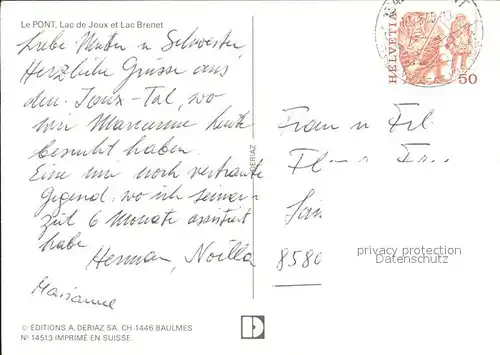 Le PONT. Lac de Joux et Lac Brenet
Liebe Mutter u Schwester
Herzliche Grüsse aus
dem Joux-Tal, wo
wir Marianne heute
besucht haben.
Eine mir noch vertraute
Gegend, wo ich seiner-
zeit 6 Monate assistiert
habe
Herman, Noëlla
Marianne
© ÉDITIONS A. DERIAZ SA. CH-1446 BAULMES
No 14513 IMPRIMÉ EN SUISSE.
DERIAZ
HELVETIA
50
Frau u Frl
8580
privacy protection
oldthing.de